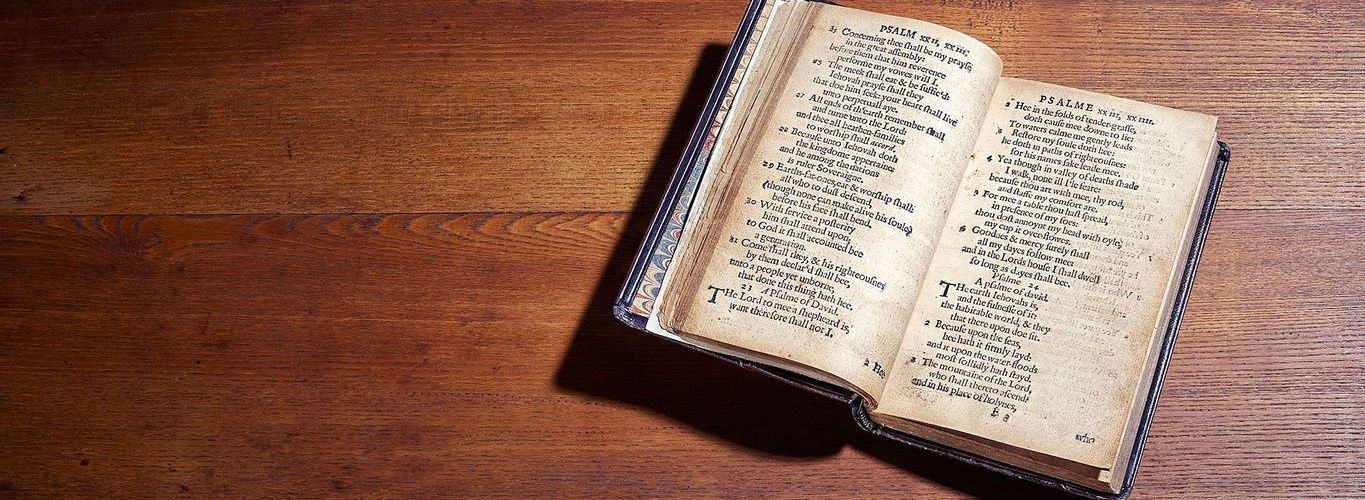 PSALM xxii, xxiii,
25 Concerning thee ſhall be my prayſe
in the great aſſembly:
before them that him reverence
performe my vowes will I.
The meek ſhall eat & be ſuffic'd:
Iehovah prayſe ſhall they
that doe him ſeek: your heart ſhall live
unto perpetuall aye.
27 All ends of th'earth remember ſhall
and turne unto the Lord:
and thee all heathen-families
to worſhip ſhall accord.
Becauſe unto Iehovah doth
the kingdome appertaine:
and he among the nations
is ruler Soveraigne.
29 Earths-fat-ones, eat & worſhip ſhall:
all who to duſt deſcend,
(though none can make alive his ſoule)
before his face ſhall bend.
30 With ſervice a poſterity
him ſhall attend upon;
to God it ſhall accounted bee
a generation.
31 Come ſhall they, & his righteouſnes
by them declar'd ſhall bee,
unto a people yet unborne,
that done this thing hath hee.
23 A Pſalme of David.
THe Lord to mee a ſhepheard is,
want therefore ſhall not I.
2 Hee
PSALME xxiii, xxiiii.
2 Hee in the folds of tender-graſſe,
doth cauſe mee downe to lie:
To waters calme me gently leads
3 Reſtore my ſoule doth hee:
he doth in paths of righteouſnes:
for his names ſake leade mee.
4 Yea though in valley of deaths ſhade
I walk, none ill I'le feare:
becauſe thou art with mee, thy rod,
and ſtaffe my comfort are.
5 For mee a table thou haſt ſpread,
in preſence of my foes:
thou doſt annoynt my head with oyle,
my cup it over-flowes.
6 Goodnes & mercy ſurely ſhall
all my dayes follow mee:
and in the Lords houſe I ſhall dwell
ſo long as dayes ſhall bee.
Pſalme 24
A pſalme of david.
THe earth Iehovahs is,
and the fulneſſe of it:
the habitable world, & they
that there upon doe ſit.
2 Becauſe upon the ſeas,
hee hath it firmly layd:
and it upon the water-floods
moſt ſollidly hath ſtayd.
3 The mountaine of the Lord,
who ſhall thereto aſcend?
and in his place of holynes,
E 2
who